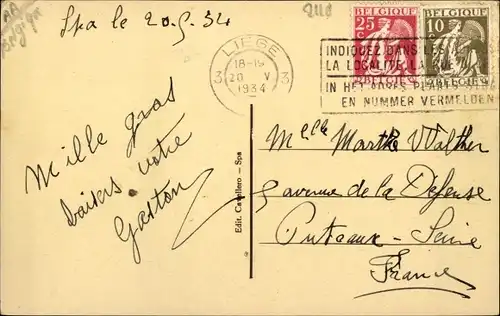 Spa le 20.5.34
BELGIQUE
25 c
BELGIE
BELGIQUE
10 c
BELGIE
LIEGE
18-19
20 V
1934
3 3
INDIQUEZ DANS LES
LA LOCALITE, LA RUE
IN HET ADRES PLAATS
EN NUMMER VERMELDEN
Mille gros
baisers votre
Gaston
Edit. Cavellero - Spa
Melle Marthe Walther
avenue de la Défense
Puteaux - Seine
France